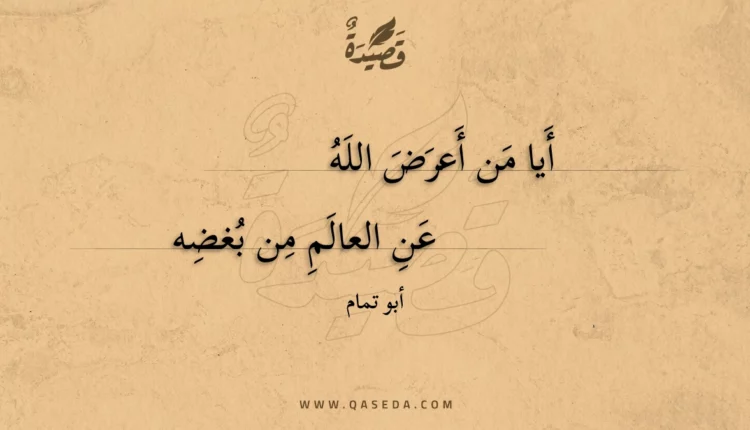 قَصِيدَةٌ
أَيا مَن أَعرَضَ اللَهُ
عَنِ العالَمِ مِن بُغضِه
أبو تمام
WWW.QASEDA.COM